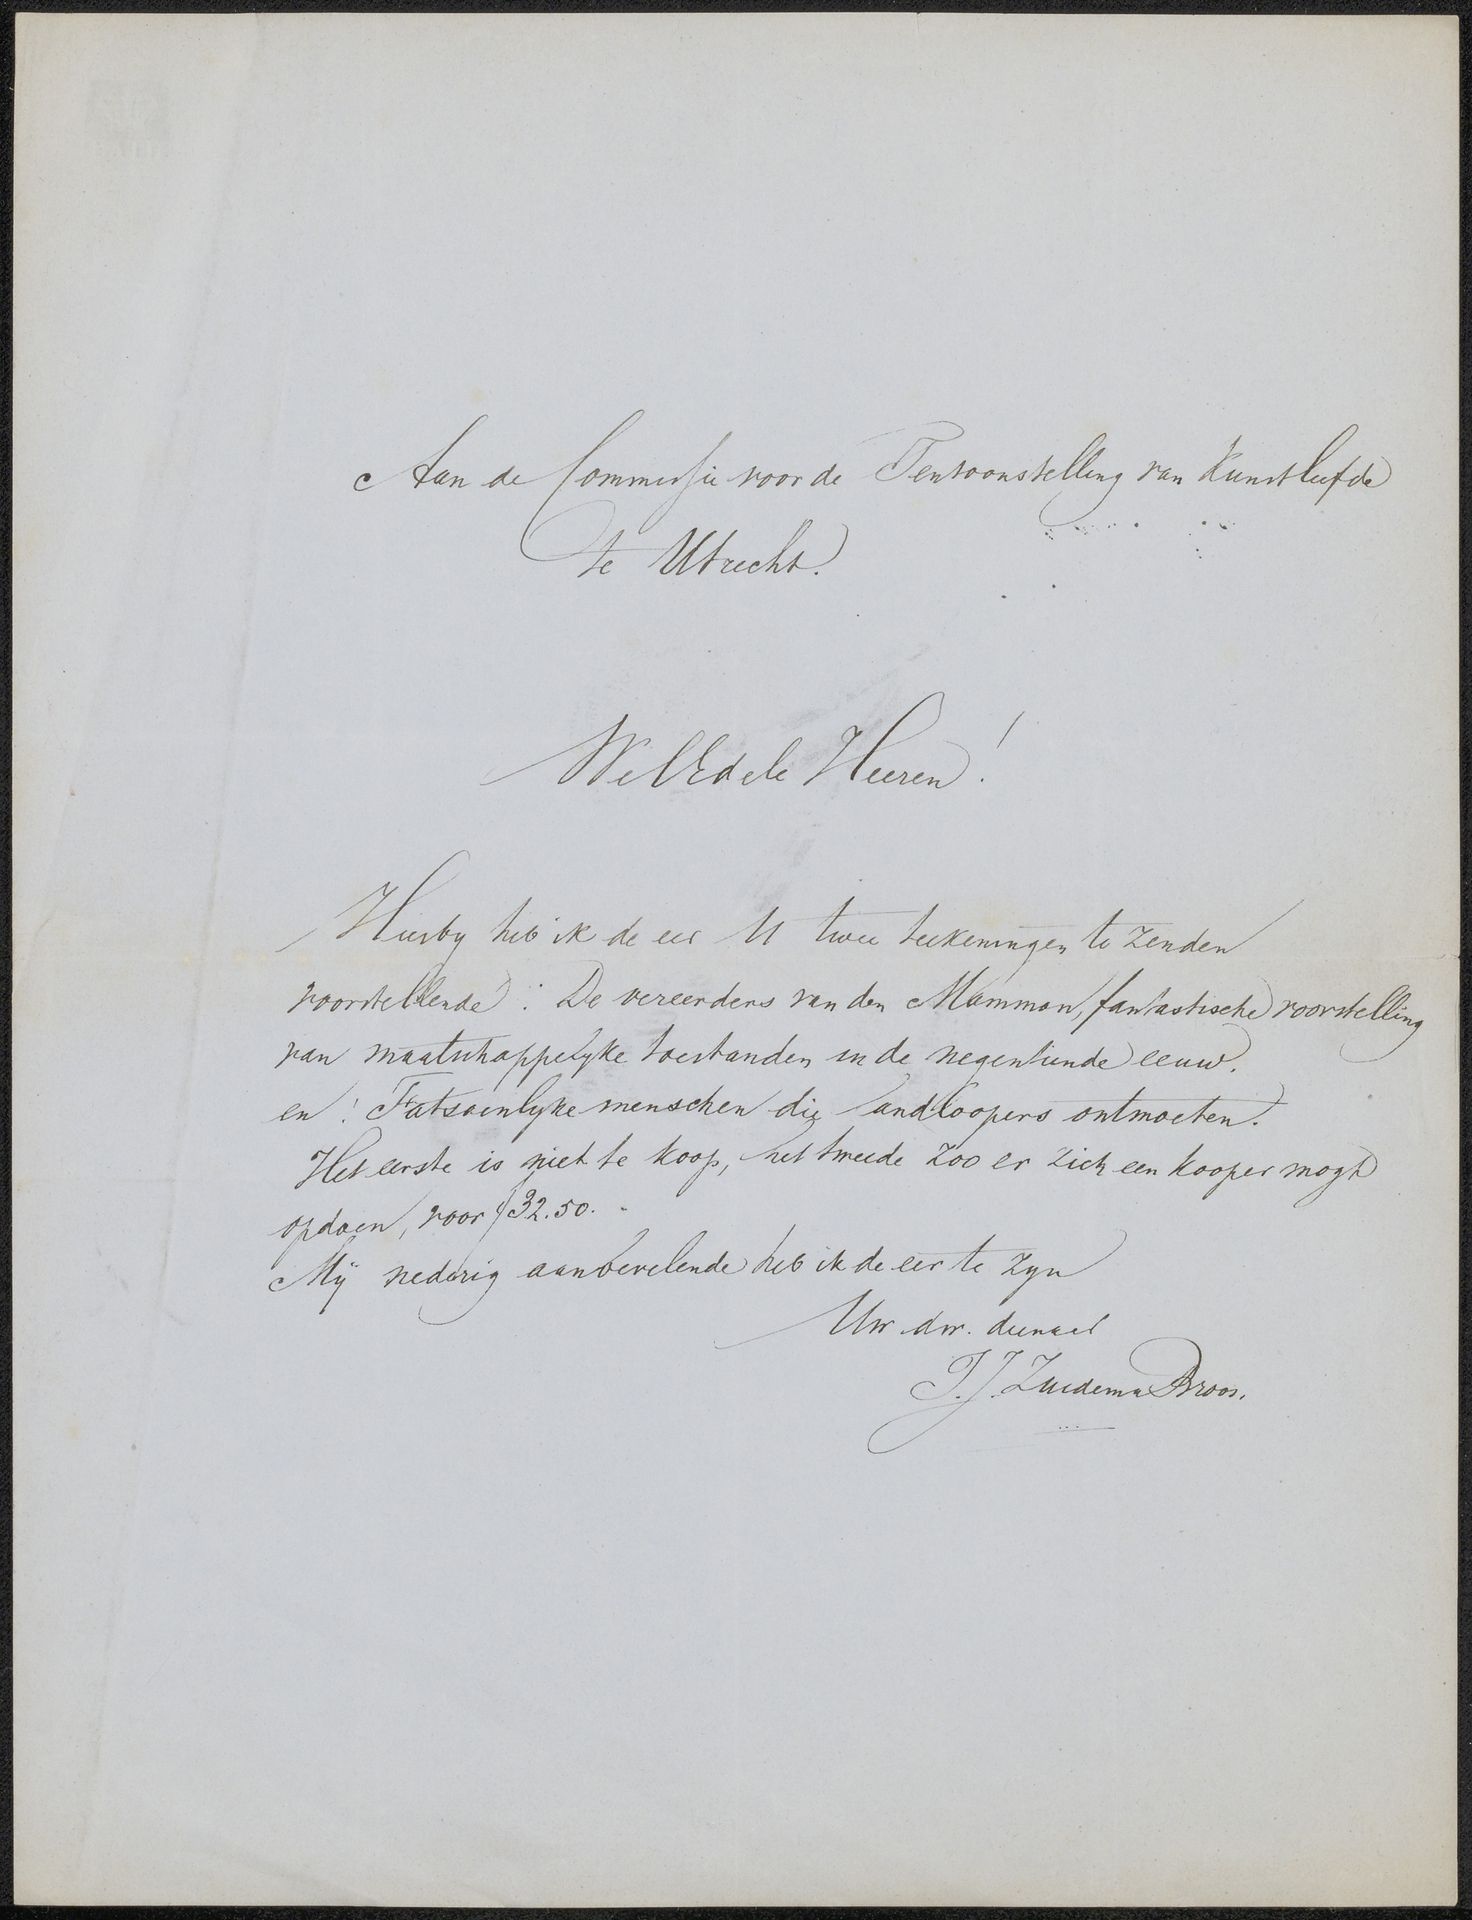 Aan de Commissie voor de Tentoonstelling van Kunstliefde
te Utrecht.
WelEdele Heeren!
Hierby heb ik de eer U twee teekeningen te zenden
voorstellende: De vereerders van den Mammon, fantastische voorstelling
van maatschappelyke toestanden in de negentiende eeuw.
en: Fatsoenlyke menschen die landloopers ontmoeten.
Het eerste is niet te koop, het tweede zoo er zich een kooper mogt
opdoen, voor f 32.50.
Mij nederig aanbevelende heb ik de eer te zyn
Uw dw. dienaar
T. J. Zuidema Broos.